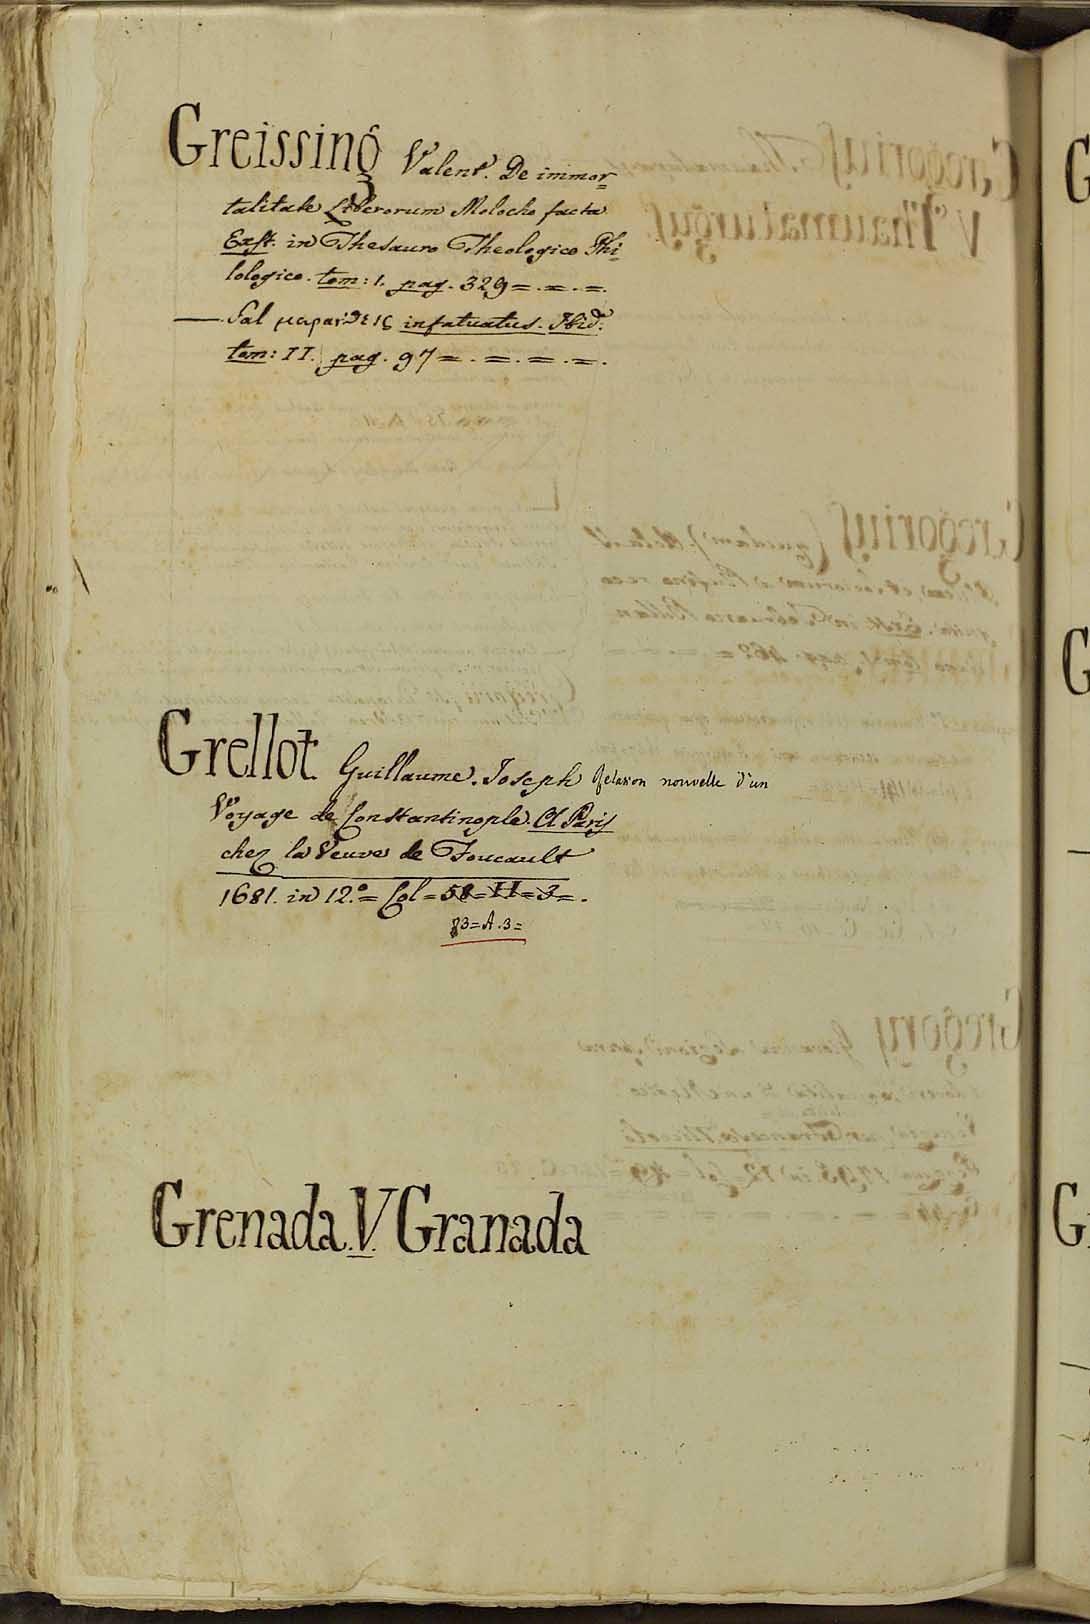 Greissing Valent. De immor=
talitate Liberorum Molocho facta
Exst. in Thesauro Theologico Phi=
lologico. tom: 1. pag. 329 = . = . = .
— Sal μωρανθεις infatuatus. Ibid.
tom: II. pag. 97 = . = . = . = .
Grellot Guillaume. Joseph Relation nouvelle d'un
Voyage de Constantinople. A Paris
chez la Veuve de Foucault
1681. in 12.° = Col = 58 = II = 3 = .
83 = A . 3 =
Grenada. V. Granada